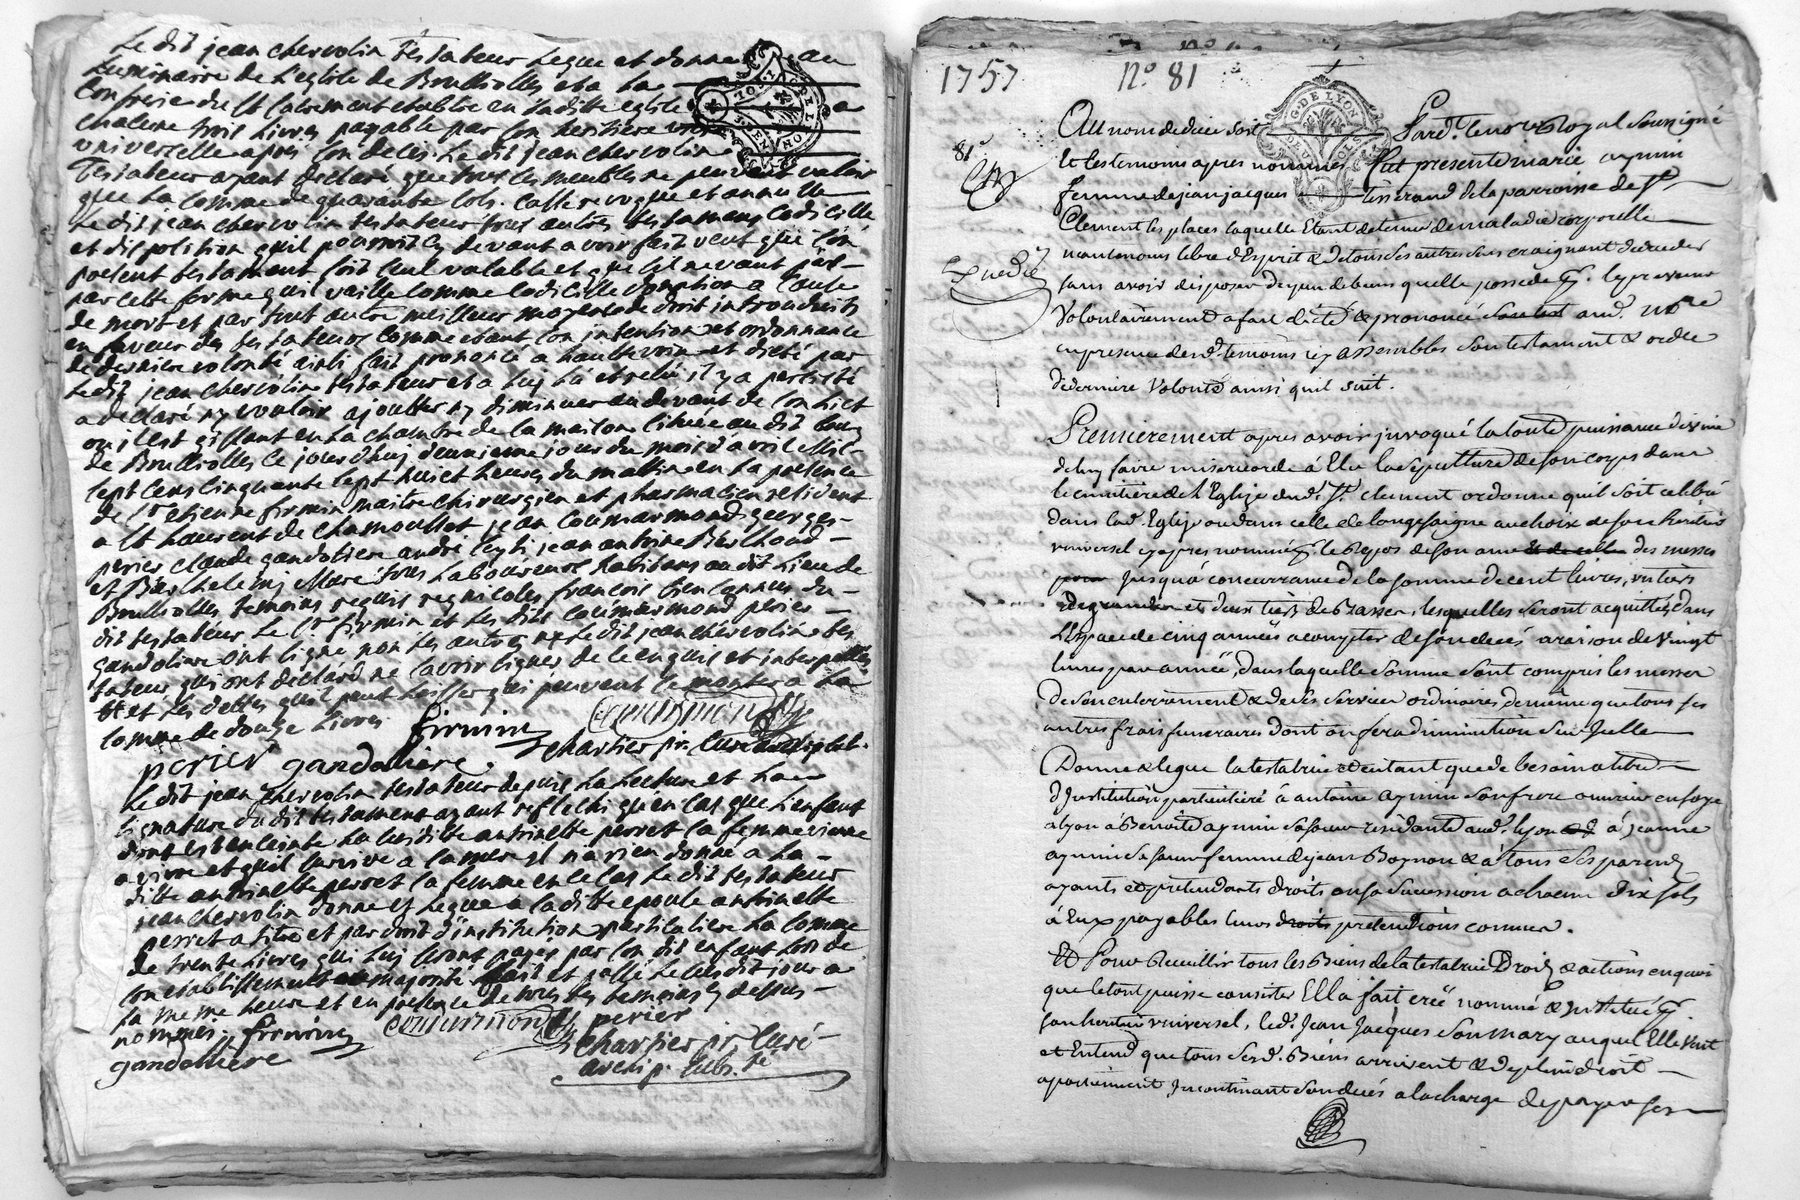 Le dit jean chervolin testateur legue et donne au
Luminaire de L'eglise de Boussolles et a la
Confrerie du st sacrement etablie en laditte eglise a
chacune trois Livres payable par son heritiere
universelle apres son deces Le dit jean chervolin
Testateur ayant declaré que tous ses meubles ne peuvent valoir
que la somme de quarante sols. casse revoque et annulle
Le dit jean chervolin testateur tous autres testamens codicille
et disposition qu'il pourroit cy devant avoir fait veut que son
present testament soit seul valable et que s'il ne vaut pas
par cette forme qu'il vaille comme codicille donation a cause
de mort et par tout autre meilleur moyens de droit introduits
en faveur des testateurs comme etant son intention et ordonnance
de derniere volonté ainsi fait prononcé a haulte voix et dicté par
Le dit jean chervolin testateur et a luy lû et relu il y a persisté
a declaré n'y vouloir ajoutter ny diminuer au devant de son Lict
ou il est gissant en la chambre de la maison située au dit bourg
de Boussolles ce jourd'huy deuxieme jour du mois d'avril Mil-
sept cens cinquante sept huict heures du matin en la presence
de sr etienne firmin maitre chirurgien et pharmacien resident
a st haurent de chamousset jean coumarmond georges
perier claude gandoliere andré jean antoine Berthaud
et Barthelemy Mure tous Laboureurs habitans au dit Lieu de
Boussolles temoins requis regnicoles francois bien connus du
dit testateur Le sr firmin et les dits coumarmond perier
gandoliere ont signé non les autres ny le dit jean chervolin tes
tateur qui ont déclaré ne sçavoir signer de ce enquis et interpellés
et Les dettes qu'il peut Laisser qui peuvent se monter a La
somme de douze Livres firmin coumarmond
perier gandoliere. chartier pr. Curé
Le dit jean chervolin testateur depuis La Lecture et La
signature du dit testament ayant reflechi qu'en cas que L'enfant
dont est enceinte La susditte antoinette perret sa femme vienne
a vivre et qu'il survive a sa mere il n'a rien donné a La
ditte antoinette perret sa femme en ce cas Le dit testateur
jean chervolin donne et Legue a la ditte epouse antoinette
perret a titre et par droit d'institution particuliere La somme
de trente Livres qui Luy seront payés par son dit enfant Lors de
son etablissement majorité fait et passé Le susdit jour a
La meme heure et en presence de tous Les temoins cy dessus
nommés. firmin coumarmond perier
gandoliere chartier pr Curé
1757 N° 81
Au nom de dieu soit Pard. Notre Royal soussigné
81e Et les temoins apres nommés Fut presente marie aymin
femme de jean jacques tisserand de la parroisse de St
Clement les places laquelle Etant detenue de maladie corporelle
neantmoins libre d'Esprit & de tous ses autres sens craignant deceder
Expedié sans avoir disposer du peu de biens quelle possede
Volontairement a fait dicté & prononcé aud. Nore
en presence desd. temoins icy assemblés son testament & ordre
de derniere Volonté ainsi quil suit.
Premierement apres avoir invoqué la toute puissance divine
de luy faire misericorde a Elu la sepulture de son corps dans
le cimitiere de l'Eglize dud. St. clement ordonne quil soit celebré
dans lad. Eglize ou dans celle de longessaigne au choix de son heritier
universel cy apres nommé le Repos de son ame des messes
jusqu'a concurrance de la somme de cent livres, un tiers
de grandes et deux tiers de Basses, lesquelles seront acquittées dans
l'Espace de cinq années a compter de son decés a raison de vingt
livres par année, dans laquelle somme sont compris les messes
de son enterrement & de ses services ordinaires, de meme que tous ses
autres frais funeraires dont on fera diminution sur Icelle
Donne & legue la testatrice et en tant que de besoin a titre
d'Institution particuliere a antoine aymin son frere ouvrier en soye
a lyon a Benoite aymin sa soeur residante aud. lyon a jeanne
aymin sa soeur femme de jean Boynon & a tous ses parens
ayants et pretendants droits en sa succession a chacun dix sols
a Eux payables leurs droits pretendions connus.
Et Pour Recuillir tous les Biens de la testatrice Droits & actions en quoi
que le tout puisse consister Ella fait creé nommé & institué
son heritier universel, led. Jean Jacques son mary auquel Elle veut
et Entend que tous sesd. Biens arrivent & de plein droit
apartiennent Incontinant son decés a la charge de payer ses